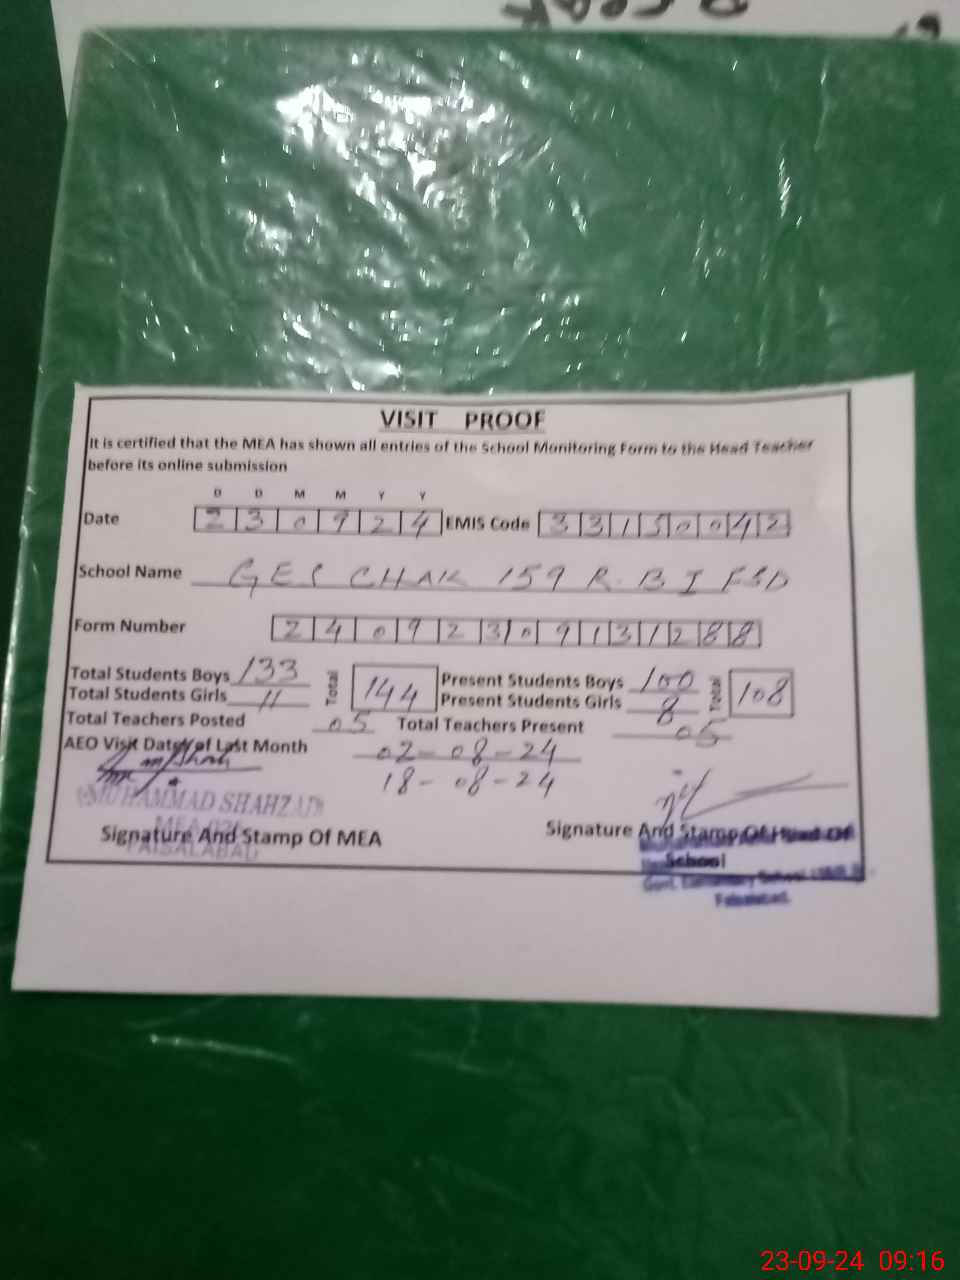 VISIT PROOF
It is certified that the MEA has shown all entries of the School Monitoring Form to the Head Teacher
before its online submission
D D M M Y Y
Date 2 3 0 9 2 4 EMIS Code 3 3 1 5 0 0 4 2
School Name GES CHAK 159 R.B I FSD
Form Number 2 4 0 9 2 3 0 9 1 3 1 2 8 8
Total Students Boys 133 Total 144 Present Students Boys 100 Total 108
Total Students Girls 11 Present Students Girls 8
Total Teachers Posted 05 Total Teachers Present 05
AEO Visit Dates of Last Month 02-08-24
18-08-24
MUHAMMAD SHAHZAD
MEA
FAISALABAD
Signature And Stamp Of MEA
Signature And Stamp Of Head Of
School
Govt. Elementary School
Faisalabad.
23-09-24 09:16